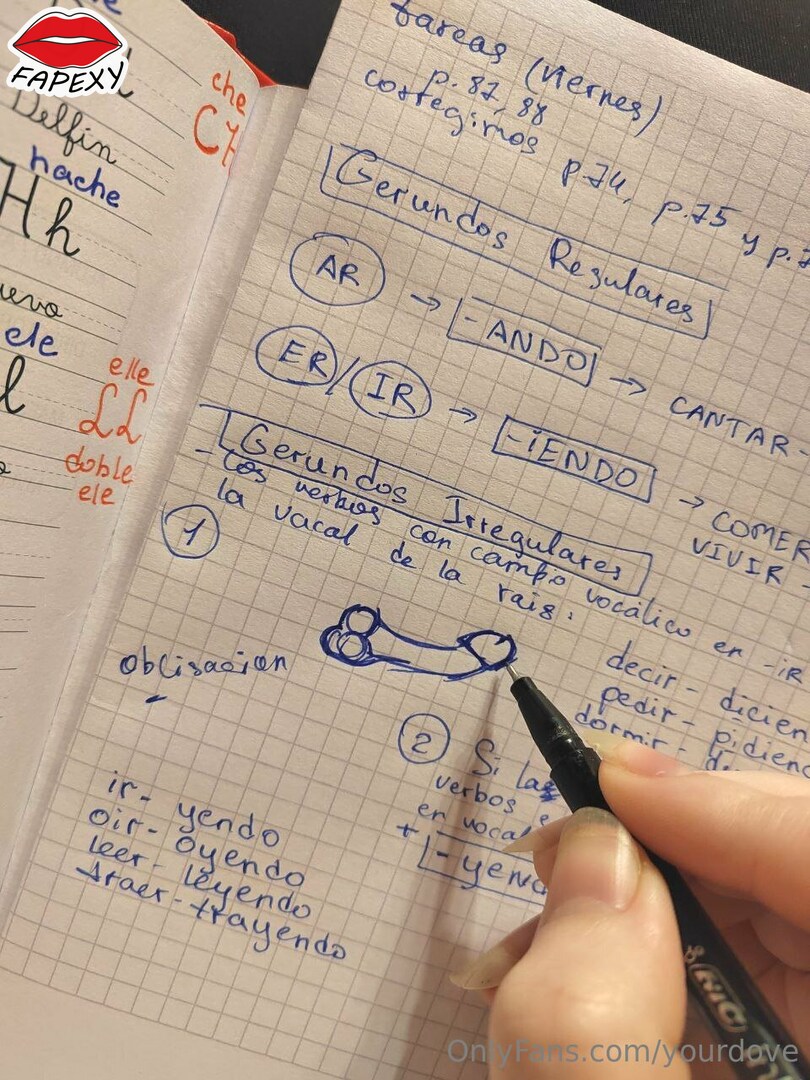 FAPEXY
Delfín
hache
Hh
ele
l
che
elle
LL
doble
ele
tareas (viernes)
p. 87, 88
corregimos p.74, p.75 y p.7
Gerundos Regulares
AR → -ANDO → CANTAR-
ER/IR → -iENDO → COMER
VIVIR
Gerundos Irregulares
1
- Los verbos con campo vocálico en -iR
la vacal de la raiz:
decir - dicien
pedir - pidiend
dormir - du
Oblisacion
2 Si las
verbos e
en vocal
+ -yend
ir - yendo
oir - oyendo
leer - leyendo
traer - trayendo
BIC
OnlyFans.com/yourdove